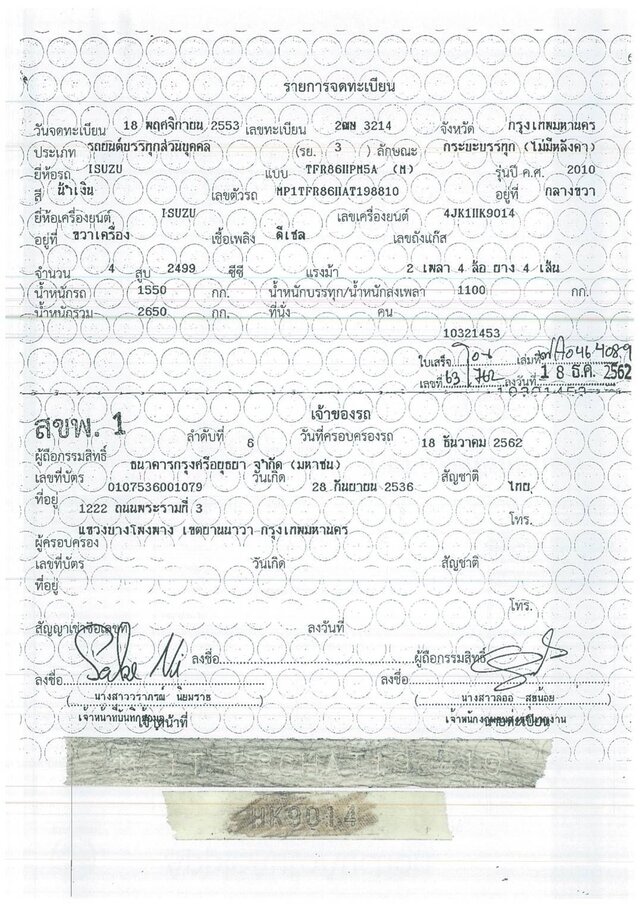 รายการจดทะเบียน
วันจดทะเบียน 18 พฤศจิกายน 2553 เลขทะเบียน 2ฒฆ 3214 จังหวัด กรุงเทพมหานคร
ประเภท รถยนต์บรรทุกส่วนบุคคล (รย. 3 ) ลักษณะ กระบะบรรทุก (ไม่มีหลังคา)
ยี่ห้อรถ ISUZU แบบ TFR86HPM5A (M) รุ่นปี ค.ศ. 2010
สี น้ำเงิน เลขตัวรถ MP1TFR86HAT198810 อยู่ที่ กลางขวา
ยี่ห้อเครื่องยนต์ ISUZU เลขเครื่องยนต์ 4JK1HK9014
อยู่ที่ ขวาเครื่อง เชื้อเพลิง ดีเซล เลขถังแก๊ส
จำนวน 4 สูบ 2499 ซีซี แรงม้า 2 เพลา 4 ล้อ ยาง 4 เส้น
น้ำหนักรถ 1550 กก. น้ำหนักบรรทุก/น้ำหนักลงเพลา 1100 กก.
น้ำหนักรวม 2650 กก. ที่นั่ง คน
10321453
ใบเสร็จ เล่มที่
เลขที่ 63/762 ลงวันที่ 18 ธ.ค. 2562
เจ้าของรถ
สขพ. 1
ลำดับที่ 6 วันที่ครอบครองรถ 18 ธันวาคม 2562
ผู้ถือกรรมสิทธิ์ ธนาคารกรุงศรีอยุธยา จำกัด (มหาชน)
เลขที่บัตร 0107536001079 วันเกิด 28 กันยายน 2536 สัญชาติ ไทย
ที่อยู่ 1222 ถนนพระรามที่ 3 โทร.
แขวงบางโพงพาง เขตยานนาวา กรุงเทพมหานคร
ผู้ครอบครอง
เลขที่บัตร วันเกิด สัญชาติ
ที่อยู่
โทร.
สัญญาเช่าซื้อเลขที่ ลงวันที่
ลงชื่อ ผู้ถือกรรมสิทธิ์
ลงชื่อ ลงชื่อ
( นางสาววราภรณ์ นิยมราช ) ( นางสาวลออ สุขน้อย )
เจ้าหน้าที่บันทึกข้อมูล
เจ้าหน้าที่ นายทะเบียน
HK9014